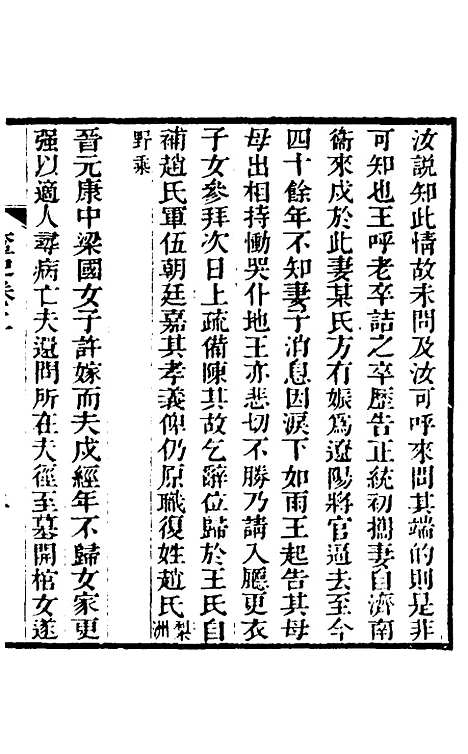 汝説知此情故未問及汝可呼來問其端的則是非
可知也王呼老卒詰之卒歷告正統初攜妻自濟南
衞來戍於此妻某氏方有娠爲遼陽將官逼去至今
四十餘年不知妻子消息因淚下如雨王起告其母
母出相持慟哭仆地王亦悲切不勝乃請入廳更衣
子女參拜次日上疏備陳其故乞辭位歸於王氏自
補趙氏軍伍朝廷嘉其孝義俾仍原職復姓趙氏梨洲
野乘
晉元康中梁國女子許嫁而夫戍經年不歸女家更
强以適人尋病亡夫還問所在夫徑至墓開棺女遂